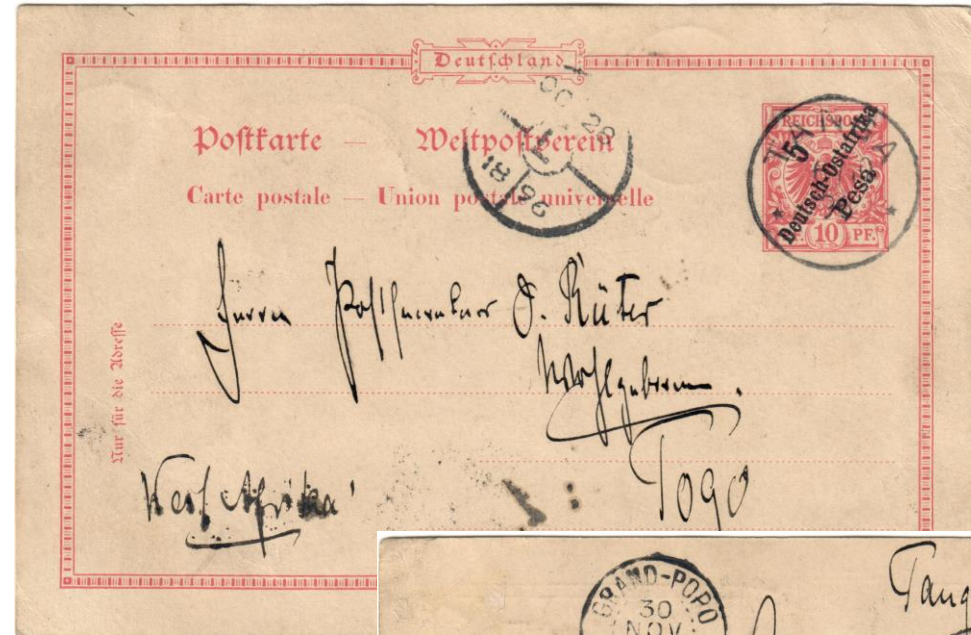 Deutschland
Postkarte — Weltpostverein
Carte postale — Union postale universelle
REICHSPOST
5
Deutsch-Ostafrika
Pesa
10 PF.
TANGA
Nur für die Adresse
Herrn O. Rüter
Wohlgeboren.
Togo
West Afrika
GRAND-POPO
30
NOV
Tang